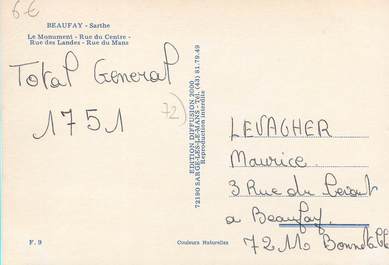 6€
BEAUFAY - Sarthe
Le Monument - Rue du Centre -
Rue des Landes - Rue du Mans
Total General
1751
72
EDITION DIFFUSION 2000
72190 SARGE-LES-LE MANS - Tél. (43) 81.79.49
Reproduction interdite
LEVAGHER
Maurice.
3 Rue du
a Beaufay.
72110 Bonnetable
F. 9
Couleurs Naturelles